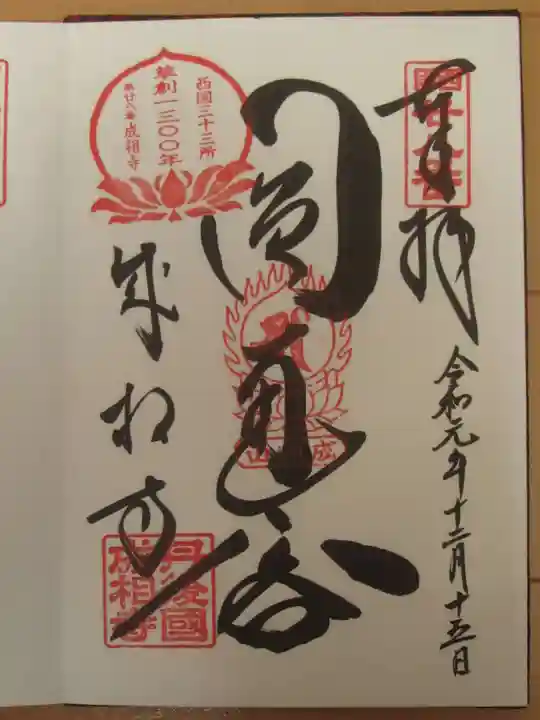 奉拝
令和元年十二月十五日
圓通
成相寺
西国三十三所
草創一三〇〇年
第廿八番 成相寺
丹後國
成相寺